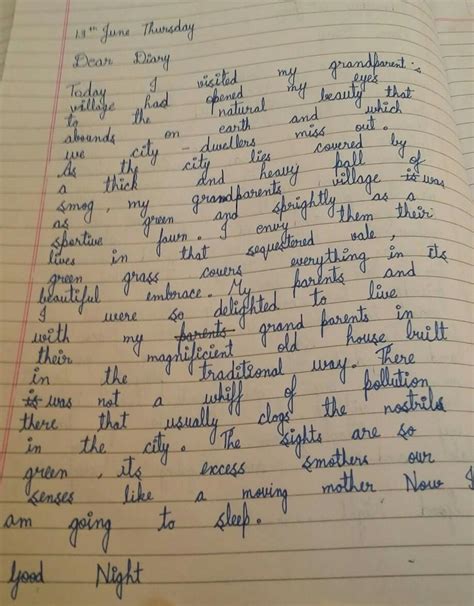 13th June Thursday
Dear Diary
Today I visited my grandparent's
village had opened my eyes
to the natural beauty that
abounds on earth and which
we city-dwellers miss out.
As the city lies covered by
a thick and heavy pall of
smog, my grandparents village is was
as green and sprightly as a
sportive fawn. I envy them their
lives in that sequestered vale,
green grass covers everything in its
beautiful embrace. My parents and
I were so delighted to live
with my parents grand parents in
their magnificient old house built
in the traditional way. There
is was not a whiff of pollution
there that usually clogs the nostrils
in the city. The sights are so
green, its excess smothers our
senses like a moving mother Now I
am going to sleep.
Good Night